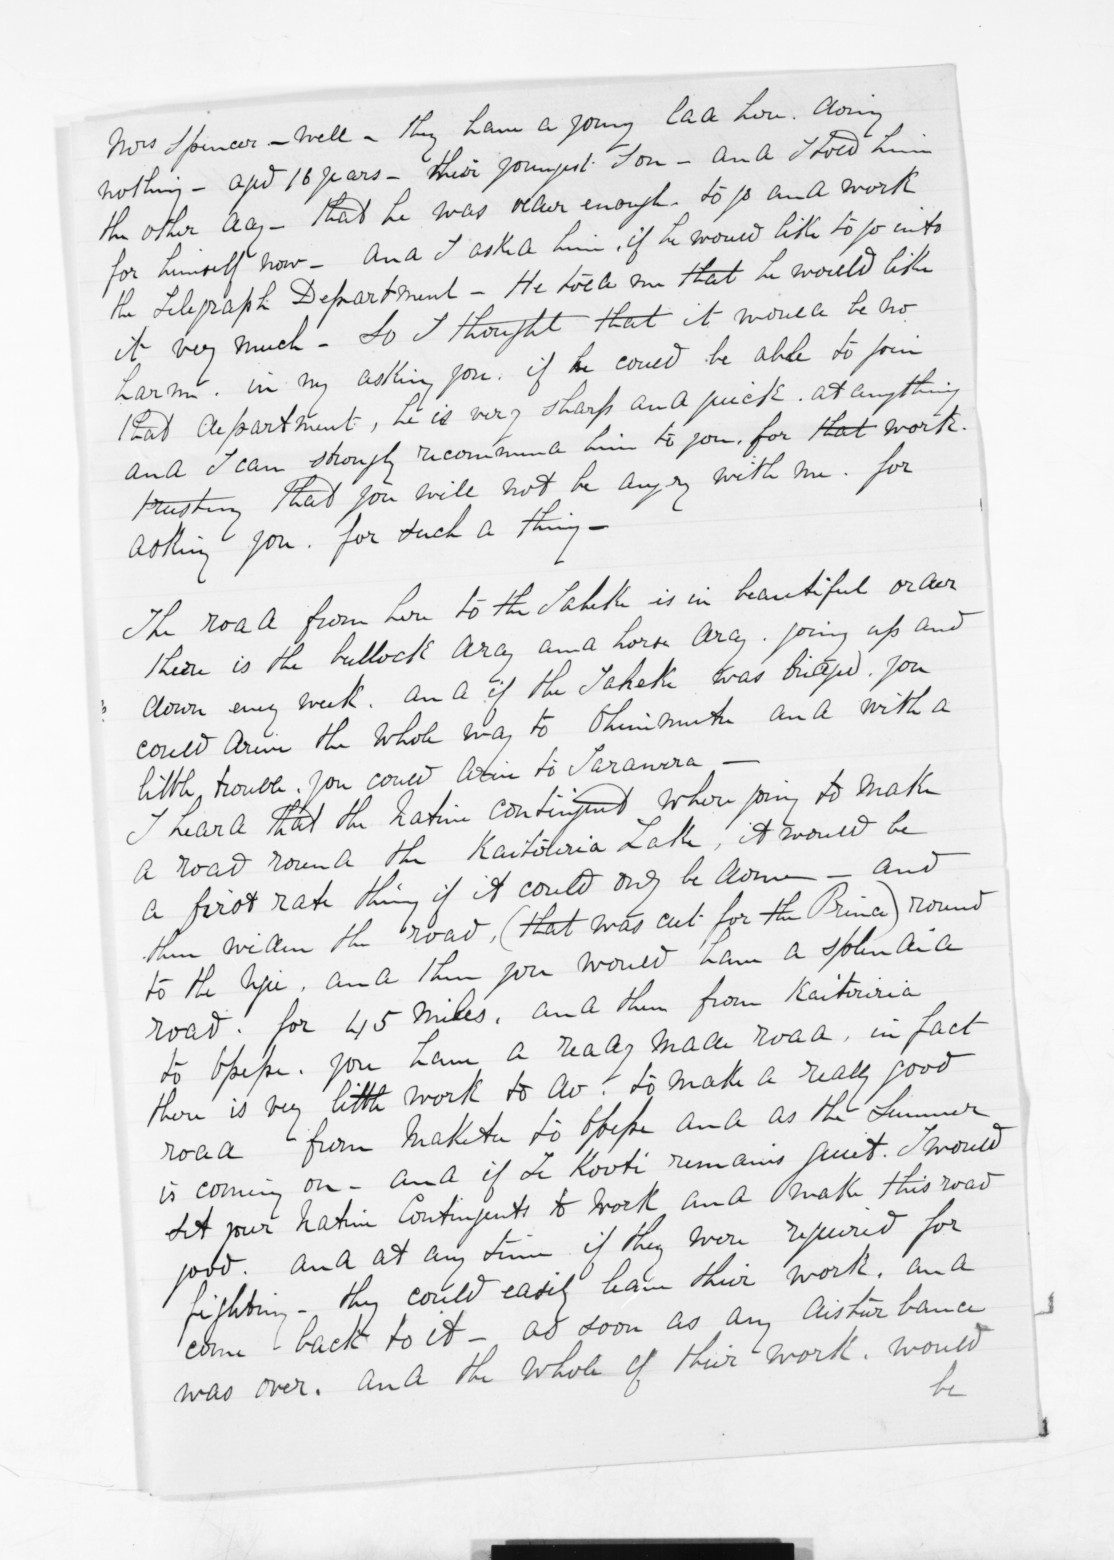 Mrs Spencer - well - they have a young lad here. doing
nothing - aged 16 years - their youngest Son - and I told him
the other day - that he was older enough. to go and work
for himself now - and I asked him, if he would like to go into
the Telegraph Department - He told me that he would like
it very much - So I thought that it would be no
harm. in my asking you. if he could be able to join
that department, he is very sharp and quick. at anything
and I can strongly recommend him to you, for that work.
trusting that you will not be angry with me. for
asking you. for such a thing -
The road from here to the Taheke is in beautiful order
there is the bullock dray and horse dray. going up and
down every week. and if the Taheke was bridged. you
could drive the whole way to Ohinemutu and with a
little trouble. you could drive to Tarawera -
I heard that the Native contingent where going to make
a road round the Kaiteriria Lake, it would be
a first rate thing if it could only be done - and
then widen the road, (that was cut for the Prince) round
to the Ngae, and then you would have a splendid
road. for 45 miles, and then from Kaiteriria
to Opepe. you have a ready made road, in fact
there is very little work to do. to make a really good
road from Maketu to Opepe and as the Summer
is coming on - and if Te Kooti remains quiet. I would
set your Native Contingents to work and make this road
good. and at any time if they were required for
fighting - they could easily leave their work. and
come back to it - as soon as any disturbance
was over. and the whole of their work. would
be